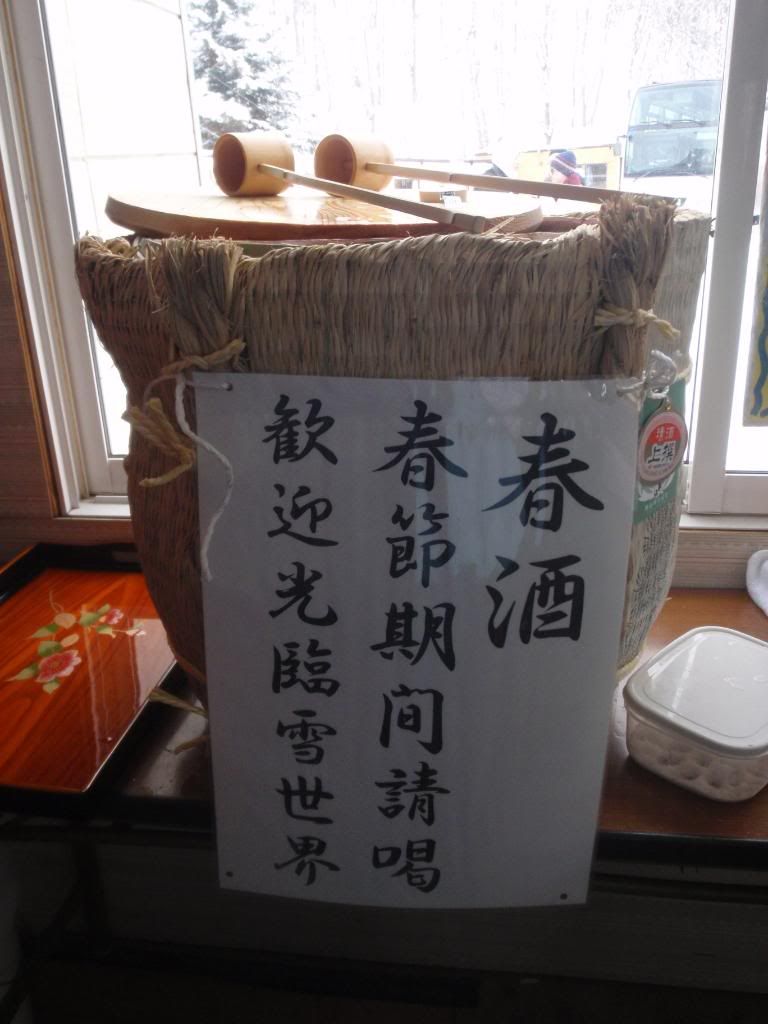 春酒
春節期间請喝
歡迎光臨雪世界
清酒
上撰